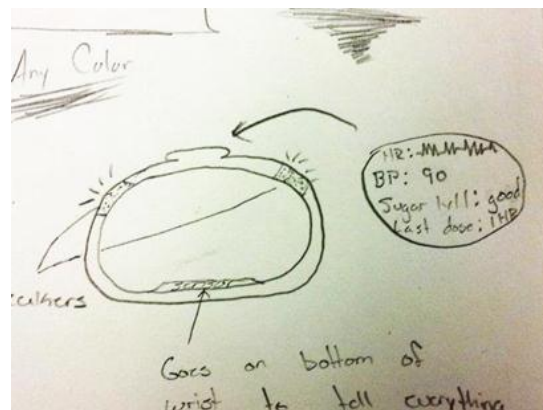 Any Color
HR:
BP: 90
Sugar lvll: good
Last dose: 1 HR
eakers
sensor
Goes on bottom of
wrist to tell everything